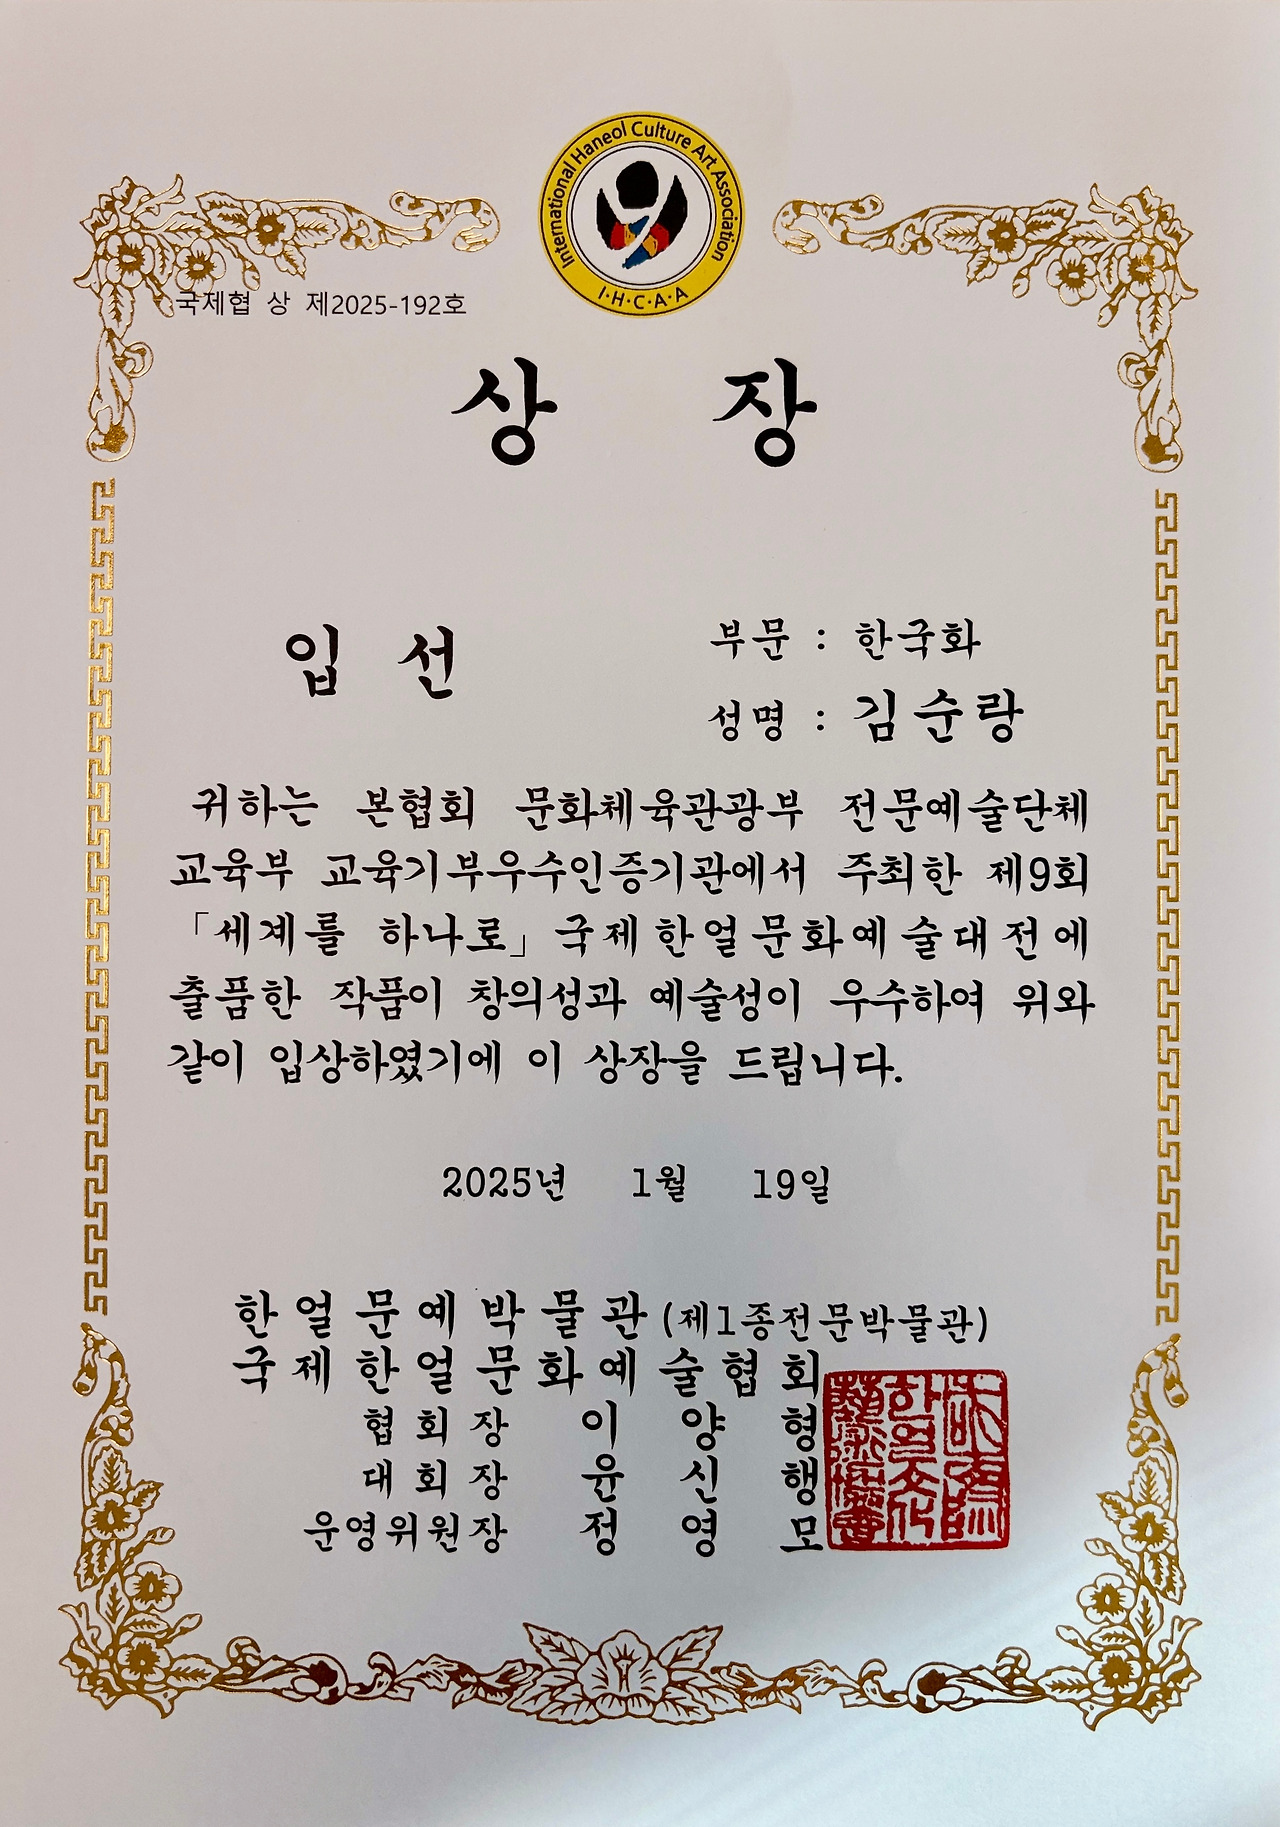 International Haneol Culture Art Association
I·H·C·A·A
국제협 상 제2025-192호
상 장
입 선
부문 : 한국화
성명 : 김순랑
귀하는 본협회 문화체육관광부 전문예술단체
교육부 교육기부우수인증기관에서 주최한 제9회
「세계를 하나로」국제한얼문화예술대전에
출품한 작품이 창의성과 예술성이 우수하여 위와
같이 입상하였기에 이 상장을 드립니다.
2025년 1월 19일
한얼문예박물관(제1종전문박물관)
국제한얼문화예술협회
협회장 이양형
대회장 윤신행
운영위원장 정영모